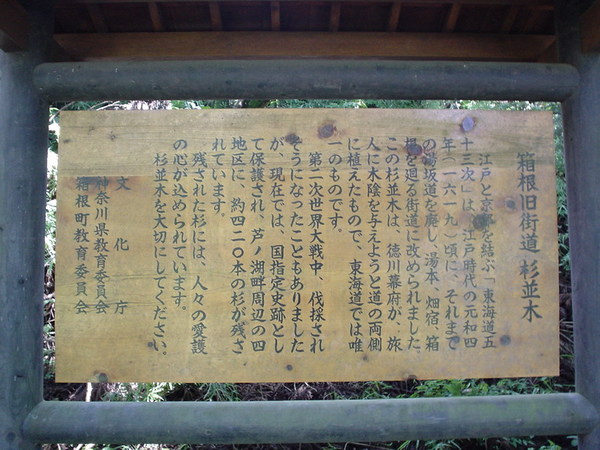 箱根旧街道 杉並木
江戸と京都を結ぶ「東海道五
十三次」は、江戸時代の元和四
年（一六一九）頃に、それまで
の湯坂道を廃し、湯本、畑宿、箱
根を廻る街道に改められました。
この杉並木は、徳川幕府が、旅
人に木陰を与えようと道の両側
に植えたもので、東海道では唯
一のものです。
第二次世界大戦中 伐採され
そうになったこともありました
が、現在では、国指定史跡とし
て保護され、芦ノ湖畔周辺の四
地区に、約四二〇本の杉が残さ
れています。
残された杉には、人々の愛護
の心が込められています。
杉並木を大切にしてください。
文化庁
神奈川県教育委員会
箱根町教育委員会